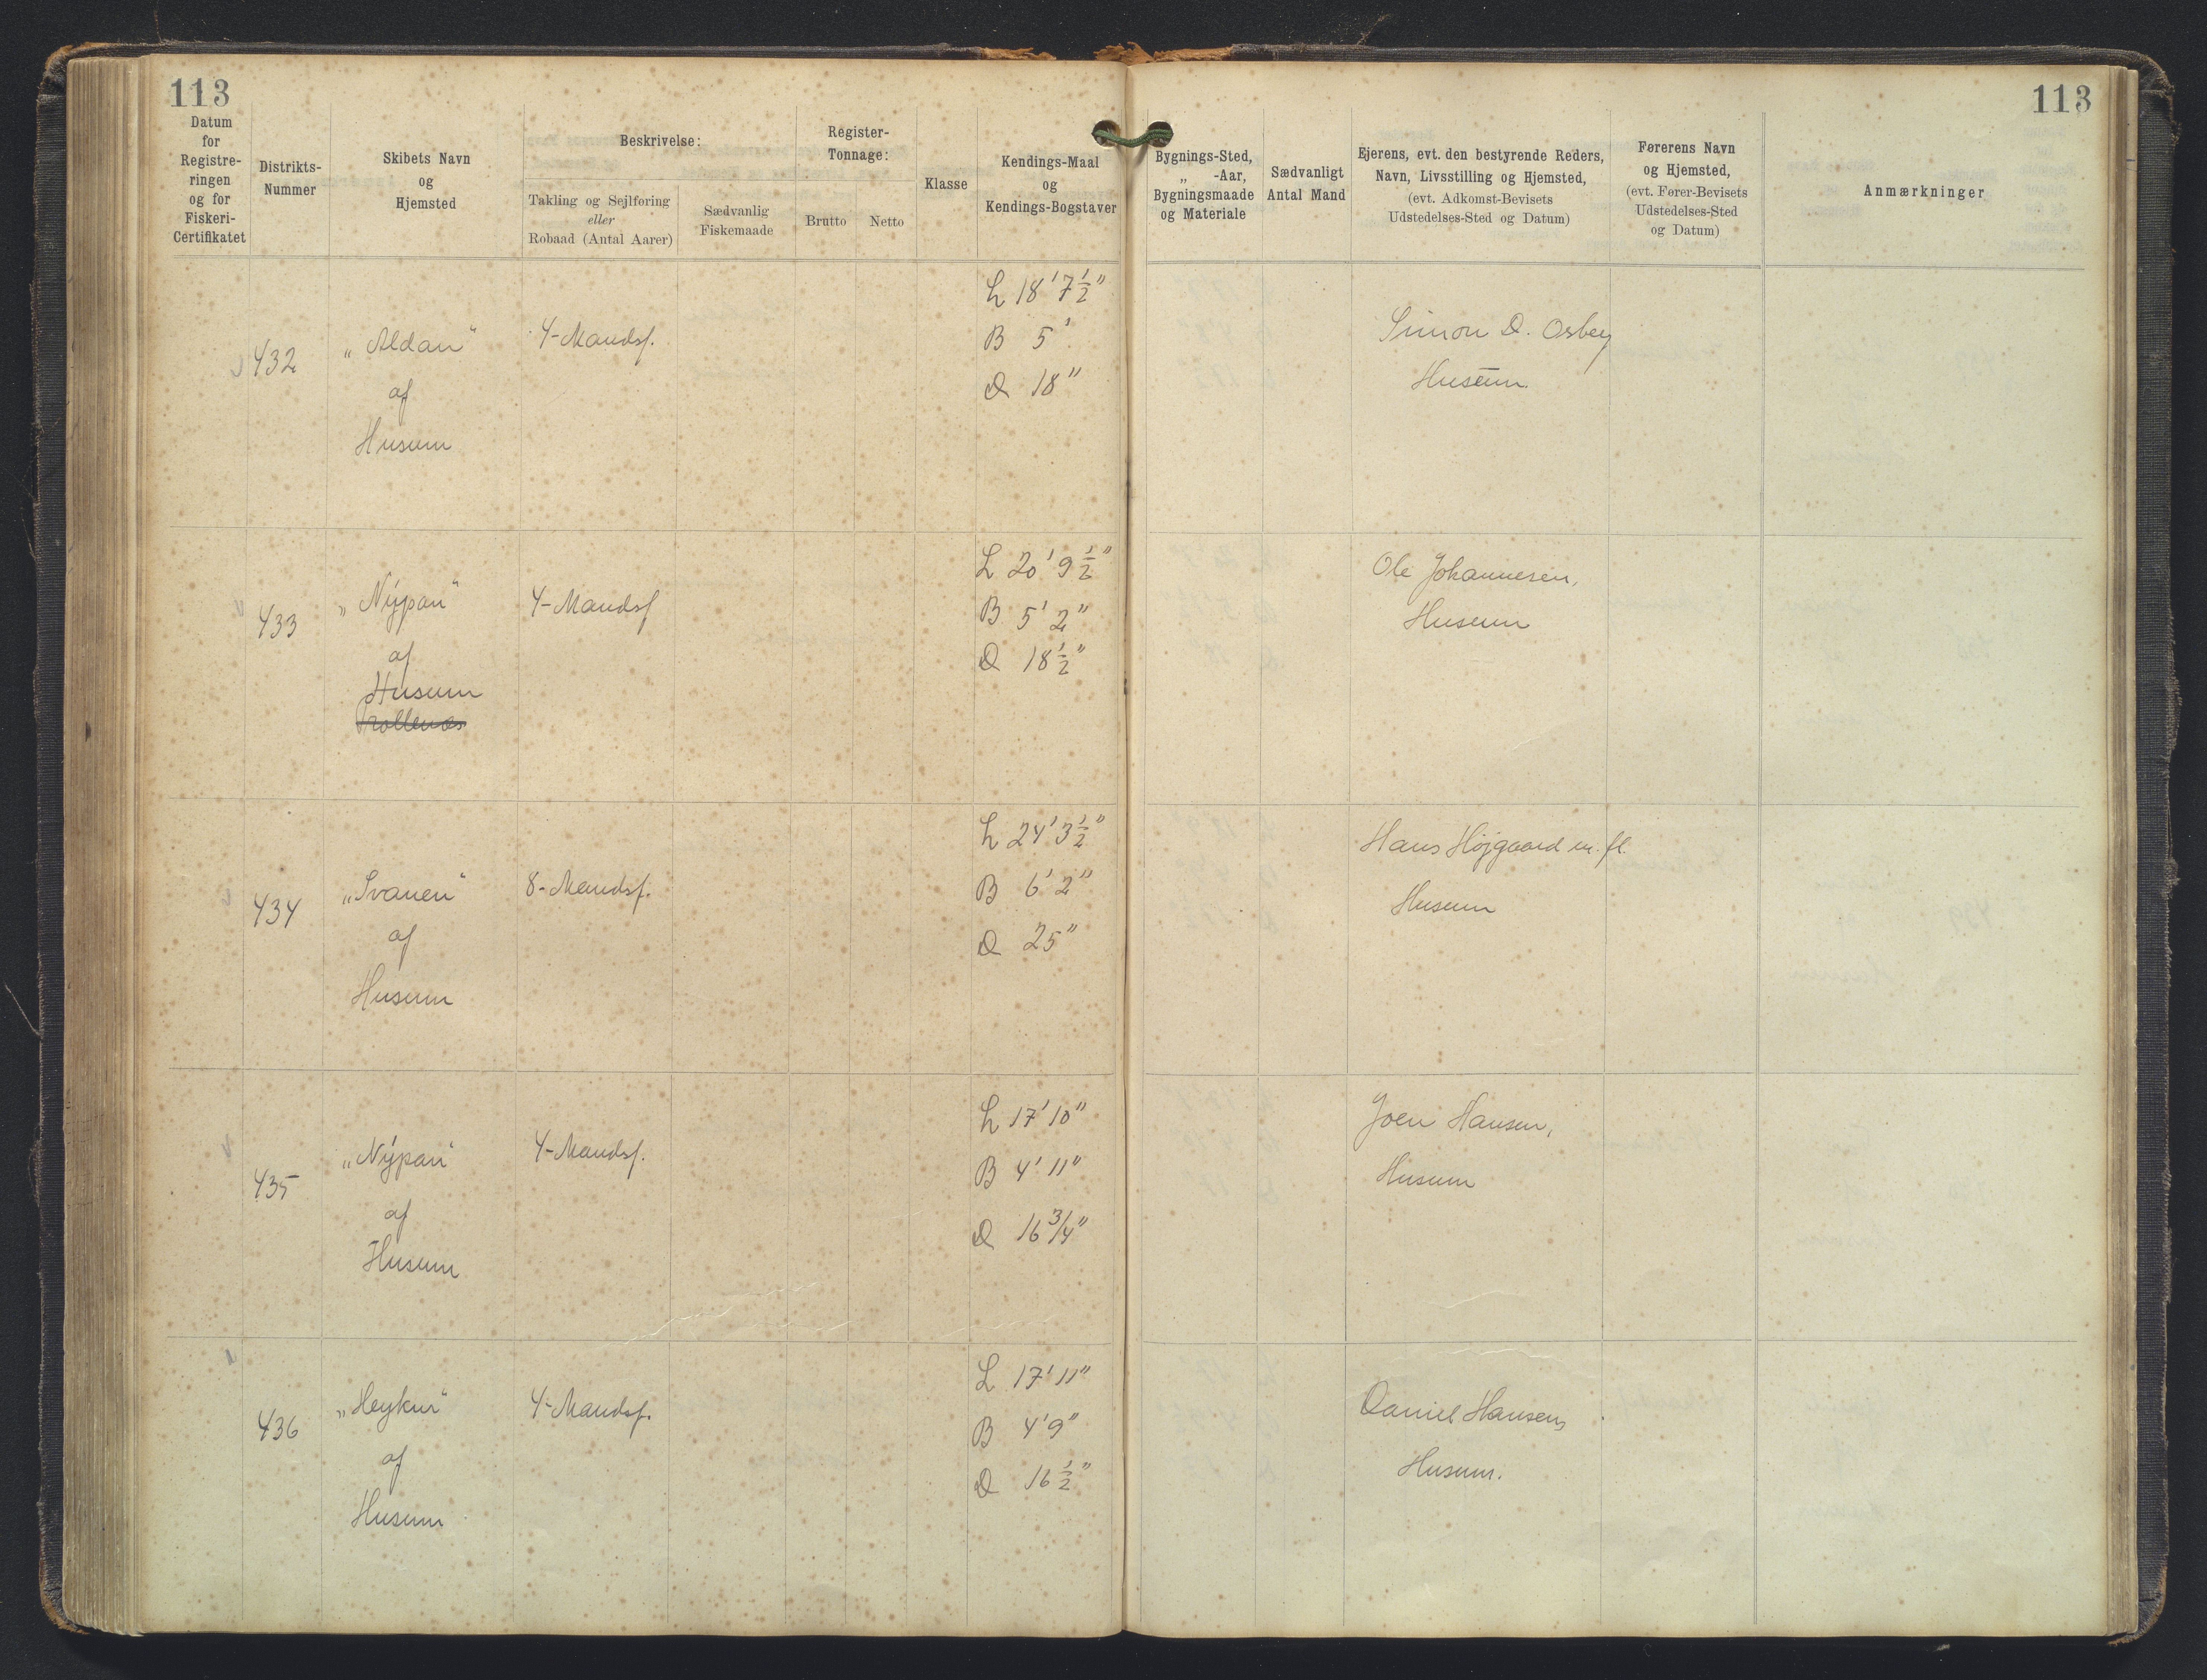 113
113
Datum
for
Registre-
ringen
og for
Fiskeri-
Certifikatet
Distrikts-
Nummer
Skibets Navn
og
Hjemsted
Beskrivelse:
Takling og Sejlføring
eller
Robaad (Antal Aarer)
Sædvanlig
Fiskemaade
Register-
Tonnage:
Brutto
Netto
Klasse
Kendings-Maal
og
Kendings-Bogstaver
Bygnings-Sted,
„ -Aar,
Bygningsmaade
og Materiale
Sædvanligt
Antal Mand
Ejerens, evt. den bestyrende Reders,
Navn, Livsstilling og Hjemsted,
(evt. Adkomst-Bevisets
Udstedelses-Sted og Datum)
Førerens Navn
og Hjemsted,
(evt. Fører-Bevisets
Udstedelses-Sted
og Datum)
Anmærkninger
432
„Aldan"
af
Husum
4-Mandsf.
L 18' 7½"
B 5'
D 18"
Simon D. Osberg
Husum
433
„Nýpan"
af
Husum
Trollenæs
4-Mandsf
L 20' 9½"
B 5' 2"
D 18½"
Ole Johannesen,
Husum
434
„Svanen"
af
Husum
8-Mandsf.
L 24' 3½"
B 6' 2"
D 25"
Hans Højgaard m. fl.
Husum
435
„Nýpan"
af
Husum
4-Mandsf.
L 17' 10"
B 4' 11"
D 16 3/4"
Joen Hansen,
Husum
436
„Heykur"
af
Husum
4-Mandsf.
L 17' 11"
B 4' 9"
D 16½"
Daniel Hansen,
Husum.